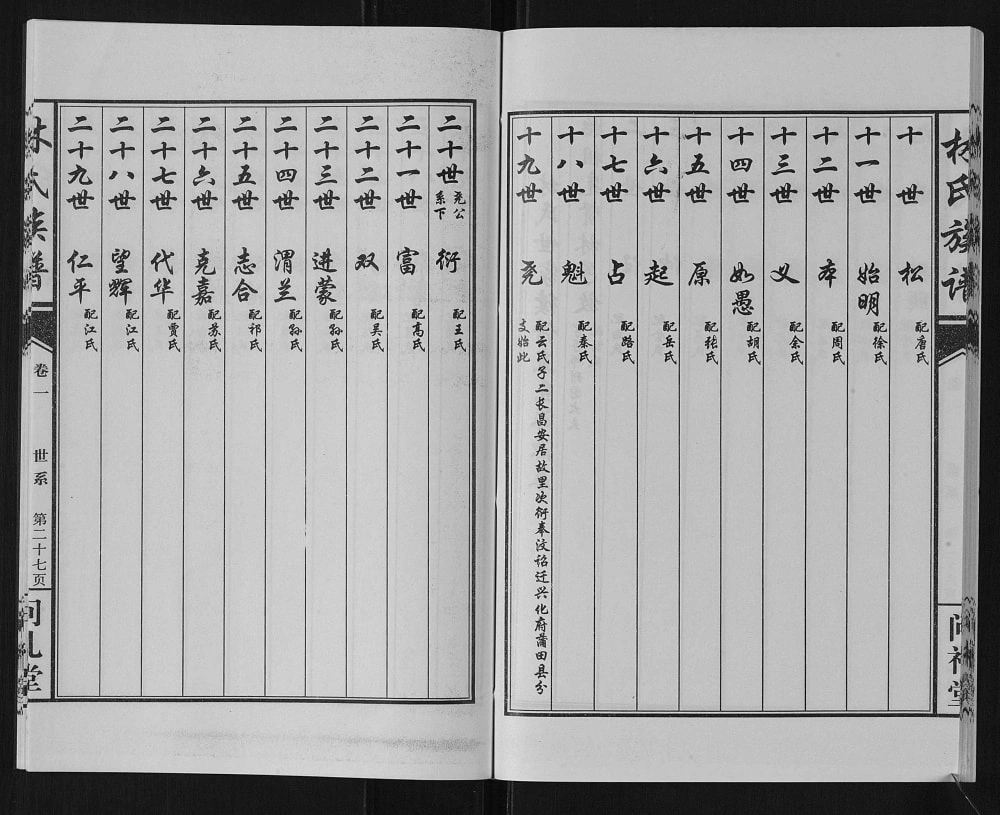 林氏族谱
问礼堂
十世 松 配唐氏
十一世 始明 配徐氏
十二世 本 配周氏
十三世 义 配余氏
十四世 如愚 配胡氏
十五世 原 配张氏
十六世 起 配岳氏
十七世 占 配路氏
十八世 魁 配秦氏
十九世 尧 配云氏子二长昌安居故里次衍奉汶诏迁兴化府莆田县分
支始此
二十世 尧公
系下 衍 配王氏
二十一世 富 配高氏
二十二世 双 配吴氏
二十三世 进蒙 配孙氏
二十四世 渭兰 配孙氏
二十五世 志合 配祁氏
二十六世 克嘉 配苏氏
二十七世 代华 配贾氏
二十八世 望辉 配江氏
二十九世 仁平 配江氏
林氏族谱
卷一
世系
第二十七页
问礼堂